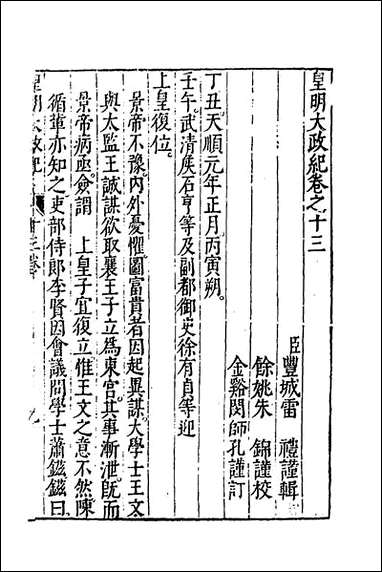 皇明大政紀卷之十三
臣豐城雷 禮謹輯
餘姚朱 錦謹校
金谿閔師孔謹訂
丁丑天順元年正月丙寅朔。
壬午武清侯石亨等及副都御史徐有自等迎
上皇復位。
景帝不豫。內外憂懼。圖富貴者因起異謀。大學士王文
與太監王誠謀欲取襄王子立為東宮。其事漸泄。旣而
景帝病亟。僉謂 上皇子宜復立。惟王文之意不然。陳
循輩亦知之。吏部侍郎李賢因會議問學士蕭鎡。鎡曰。
皇明大政紀